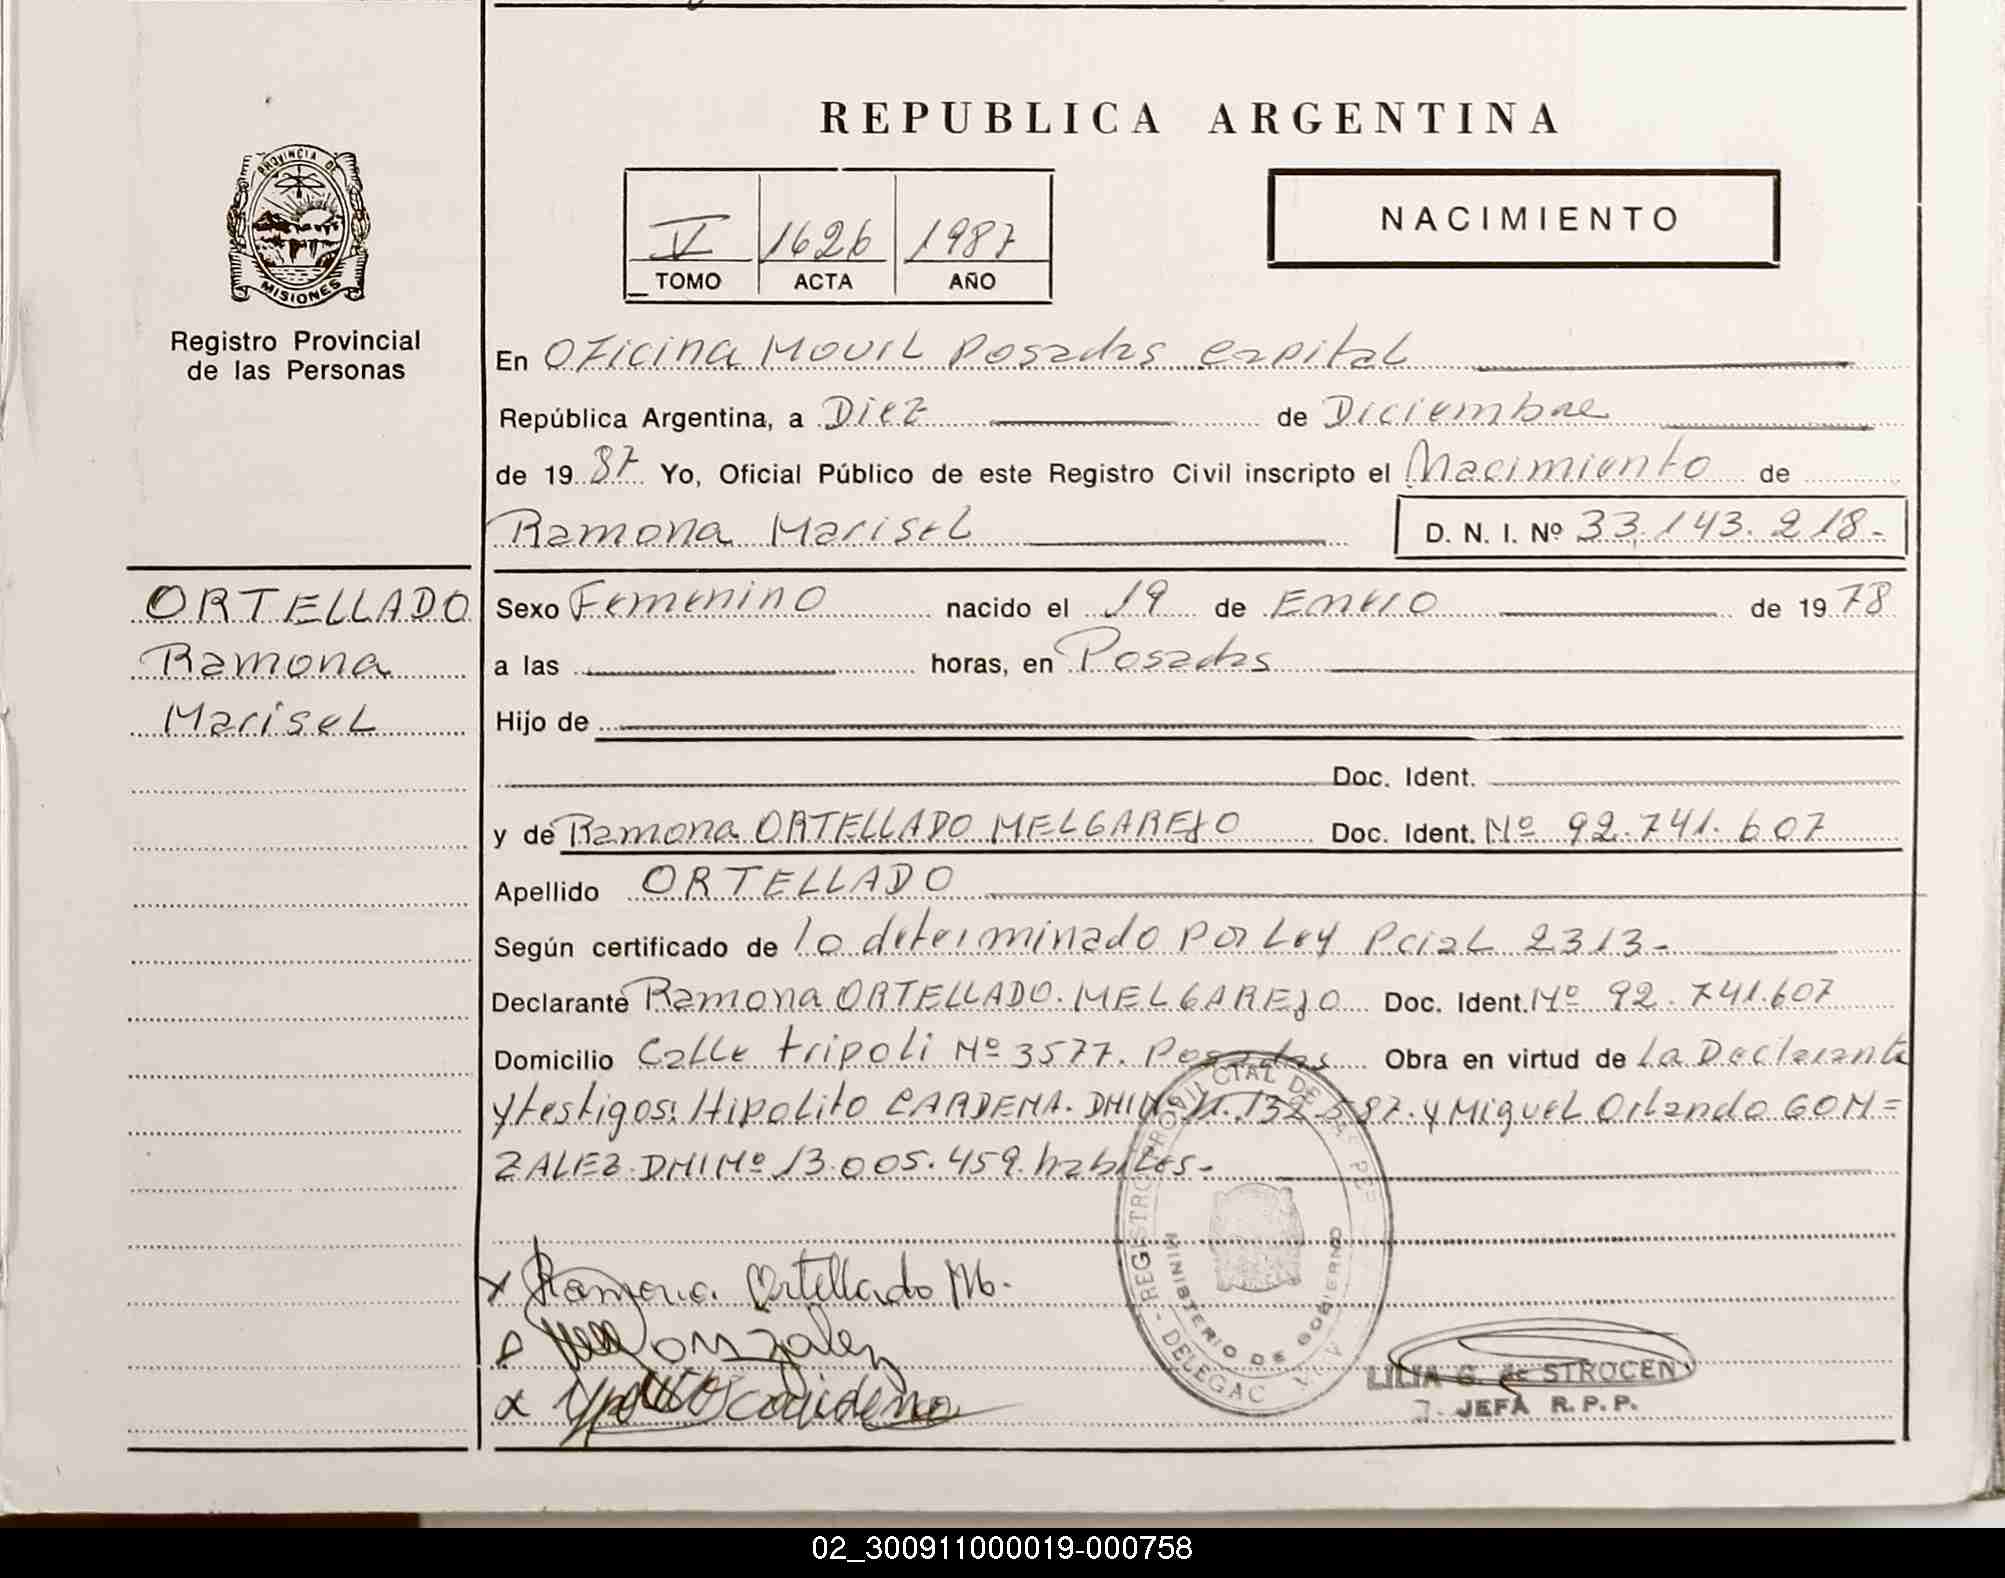 REPUBLICA ARGENTINA
PROVINCIA DE
MISIONES
Registro Provincial
de las Personas
V 1626 1987
TOMO ACTA AÑO
NACIMIENTO
En Oficina Movil Posadas capital
República Argentina, a Diez de Diciembre
de 19 87 Yo, Oficial Público de este Registro Civil inscripto el Nacimiento de
Ramona Marisel D. N. I. Nº 33.143.218-
ORTELLADO
Ramona
Marisel
Sexo Femenino nacido el 19 de Enero de 19 78
a las horas, en Posadas
Hijo de
Doc. Ident.
y de Ramona ORTELLADO MELGAREJO Doc. Ident. Nº 92.741.607
Apellido ORTELLADO
Según certificado de lo determinado por Ley Pcial 2313-
Declarante Ramona ORTELLADO MELGAREJO Doc. Ident. Nº 92.741.607
Domicilio Calle tripoli Nº 3577. Posadas Obra en virtud de La Declarante
y testigos: Hipolito CARDENA. DNI Nº 11.132.587. y Miguel Orlando GON=
ZALEZ. DNI Nº 13.005.459. habiles-
REGISTRO PROVINCIAL DE LAS PE
MINISTERIO DE GOBIERNO
- DELEGAC
Ramona Ortellado M.
Gonzalez
LILIA G. de STROCEN
JEFA R. P. P.
02_300911000019-000758